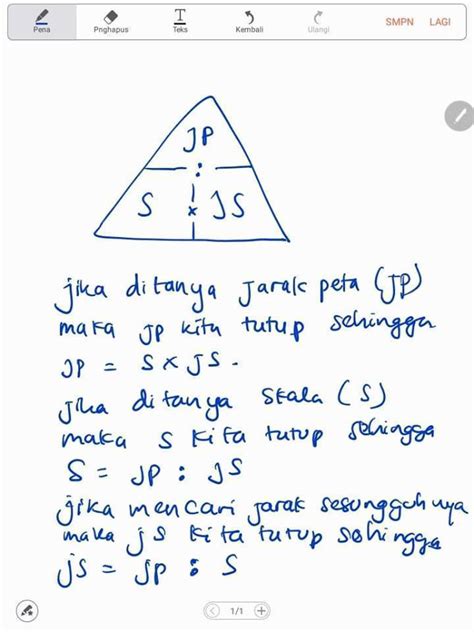 Pena Pnghapus Teks Kembali Ulangi SMPN LAGI
JP
:
S x JS
jika ditanya Jarak peta (JP)
maka JP kita tutup sehingga
JP = S x JS.
jika ditanya Skala (S)
maka S kita tutup sehingga
S = JP : JS
jika mencari jarak sesungguhnya
maka js kita tutup sehingga
js = JP : S
1/1